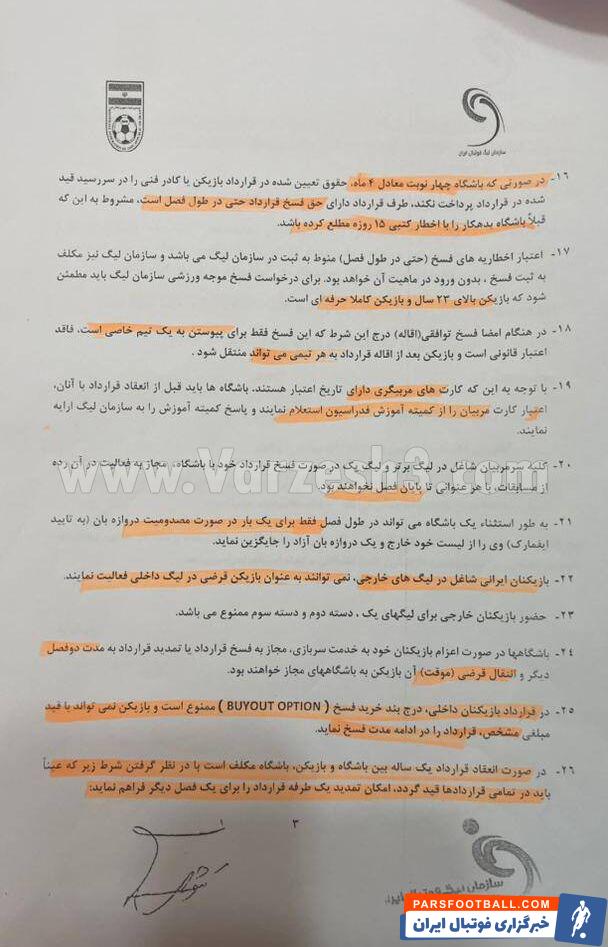 سازمان لیگ فوتبال ایران
۱۶- در صورتی که باشگاه چهار نوبت معادل ۴ ماه، حقوق تعیین شده در قرارداد بازیکن یا کادر فنی را در سررسید قید
شده در قرارداد پرداخت نکند، طرف قرارداد دارای حق فسخ قرارداد حتی در طول فصل است، مشروط به این که
قبلاً باشگاه بدهکار را با اخطار کتبی ۱۵ روزه مطلع کرده باشد.
۱۷- اعتبار اخطاریه های فسخ (حتی در طول فصل) منوط به ثبت در سازمان لیگ می باشد و سازمان لیگ نیز مکلف
به ثبت فسخ ، بدون ورود در ماهیت آن خواهد بود. برای درخواست فسخ موجه ورزشی سازمان لیگ باید مطمئن
شود که بازیکن بالای ۲۳ سال و بازیکن کاملا حرفه ای است.
۱۸- در هنگام امضا فسخ توافقی(اقاله) درج این شرط که این فسخ فقط برای پیوستن به یک تیم خاصی است، فاقد
اعتبار قانونی است و بازیکن بعد از اقاله قرارداد به هر تیمی می تواند منتقل شود .
۱۹- با توجه به این که کارت های مربیگری دارای تاریخ اعتبار هستند، باشگاه ها باید قبل از انعقاد قرارداد با آنان،
اعتبار کارت مربیان را از کمیته آموزش فدراسیون استعلام نمایند و پاسخ کمیته آموزش را به سازمان لیگ ارایه
نمایند.
۲۰- کلیه سرمربیان شاغل در لیگ برتر و لیگ یک در صورت فسخ قرارداد خود با باشگاه، مجاز به فعالیت در آن رده
از مسابقات، با هر عنوانی تا پایان فصل نخواهند بود.
www.Varzesh3.com
۲۱- به طور استثناء یک باشگاه می تواند در طول فصل فقط برای یک بار در صورت مصدومیت دروازه بان (به تایید
ایفمارک) وی را از لیست خود خارج و یک دروازه بان آزاد را جایگزین نماید.
۲۲- بازیکنان ایرانی شاغل در لیگ های خارجی، نمی توانند به عنوان بازیکن قرضی در لیگ داخلی فعالیت نمایند.
۲۳- حضور بازیکنان خارجی برای لیگهای یک ، دسته دوم و دسته سوم ممنوع می باشد.
۲۴- باشگاهها در صورت اعزام بازیکنان خود به خدمت سربازی، مجاز به فسخ قرارداد یا تمدید قرارداد به مدت دوفصل
دیگر و انتقال قرضی (موقت) آن بازیکن به باشگاههای مجاز خواهند بود.
۲۵- در قرارداد بازیکنان داخلی، درج بند خرید فسخ ( BUYOUT OPTION ) ممنوع است و بازیکن نمی تواند با قید
مبلغی مشخص، قرارداد را در ادامه مدت فسخ نماید.
۲۶- در صورت انعقاد قرارداد یک ساله بین باشگاه و بازیکن، باشگاه مکلف است با در نظر گرفتن شرط زیر که عیناً
باید در تمامی قراردادها قید گردد، امکان تمدید یک طرفه قرارداد را برای یک فصل دیگر فراهم نماید:
۳
سازمان لیگ فوتبال ایران
PARSFOOTBALL.COM
خبرگزاری فوتبال ایران